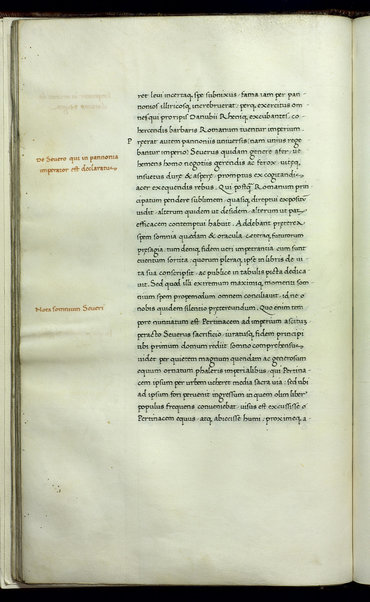 ret levi incertaq, spe subnixus. fama iam per pan
nonios illiricosq, increbruerat. perq, exercitus om
nes qui pro ripis Danubii Rheniq, excubantes. co
hercendis barbaris Romanum tuentur imperium
P rerat autem pannoniis universis: nam unius rege
De Severo qui in pannonia
imperator est declaratus
bantur imperio: Severus quidam genere afer: ve
hemens homo negotiis gerendis ac ferox: viteq,
insuetus dure & aspere: promptus ex cogitandis,
acer exequendis rebus. Qui postq, Romanum prin
cipatum pendere sublimem, quasiq, direptui expositum
vidit. alterum quidem ut desidem. alterum ut pa
efficacem contemptui habuit. Addebant preterea
spem somnia quedam & oracula. ceteraq, futurorum
presagia. tum denuq, fidem veri impetrantia. cum sunt
eventum sortita. quorum pleraq, ipse in libris de vi
ta sua conscripsit. ac publice in tabulis picta dedica
vit. Sed quod illi extremum maximiq, momenti som
nium spem propemodum omnem conciliavit. id ne a
Nota somnium Severi
nobis quidem silentio pretereundum. Quo enim tem
pore nunciatum est Pertinacem ad imperium ascitum
peracto Severus sacrificio. iuratusq, fidem principi
ubi primum domum rediit somno comprehensus
videt per quietem magnum quendam ac generosum
equum ornatum phaleris imperialibus. qui Pertina
cem ipsum per urbem veheret media sacra via: sed ubi
ad ipsum fori pervenit ingressum in quem olim liber
populus frequens conveniebat. visus est excussisse
Pertinacem equus. atq, abiecisse humi. proximeq, a